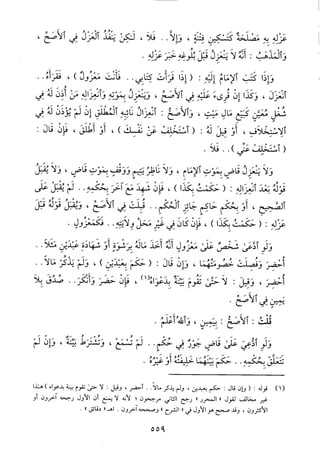 عَزْلِهِ بِهِ مَصْلَحَةٌ كَتَسْكِينِ فِتْنَةٍ ، وَإِلَّا.. فَلَا ، لَـٰكِنْ يَنْفُذُ ٱلْعَزْلُ فِي ٱلْأَصَحِّ ،
وَٱلْمَذْهَبُ : أَنَّهُ لَا يَنْعَزِلُ قَبْلَ بُلُوغِهِ خَبَرُ عَزْلِهِ .
وَإِذَا كَتَبَ ٱلْإِمَامُ إِلَيْهِ : ( إِذَا قَرَأْتَ كِتَابِي.. فَأَنْتَ مَعْزُولٌ ) ، فَقَرَأَهُ..
ٱنْعَزَلَ ، وَكَذَا إِنْ قُرِىءَ عَلَيْهِ فِي ٱلْأَصَحِّ ، وَيَنْعَزِلُ بِمَوْتِهِ وَٱنْعِزَالِهِ مَنْ أُذِنَ لَهُ فِي
شُغْلٍ مُعَيَّنٍ كَبَيْعِ مَالِ مَيْتٍ ، وَٱلْأَصَحُّ : ٱنْعِزَالُ نَائِبِهِ ٱلْمُطْلَقِ إِنْ لَمْ يُؤْذَنْ لَهُ فِي
ٱلِٱسْتِخْلَافِ ، أَوْ قِيلَ لَهُ : ( ٱسْتَخْلِفْ عَنْ نَفْسِكَ ) ، أَوْ أُطْلِقَ ، فَإِنْ قَالَ :
( ٱسْتَخْلِفْ عَنِّي ).. فَلَا .
وَلَا يَنْعَزِلُ قَاضٍ بِمَوْتِ ٱلْإِمَامِ ، وَلَا نَاظِرُ يَتِيمٍ وَوَقْفٍ بِمَوْتِ قَاضٍ ، وَلَا يُقْبَلُ
قَوْلُهُ بَعْدَ ٱنْعِزَالِهِ : ( حَكَمْتُ بِكَذَا ) ، فَإِنْ شَهِدَ مَعَ آخَرَ بِحُكْمِهِ.. لَمْ يُقْبَلْ عَلَى
ٱلصَّحِيحِ ، أَوْ بِحُكْمِ حَاكِمٍ جَائِزِ ٱلْحُكْمِ.. قُبِلَتْ فِي ٱلْأَصَحِّ ، وَيُقْبَلُ قَوْلُهُ قَبْلَ
عَزْلِهِ : ( حَكَمْتُ بِكَذَا ) ، فَإِنْ كَانَ فِي غَيْرِ مَحَلِّ وِلَايَتِهِ.. فَكَمَعْزُولٍ .
وَلَوِ ٱدَّعَىٰ شَخْصٌ عَلَىٰ مَعْزُولٍ أَنَّهُ أَخَذَ مَالَهُ بِرِشْوَةٍ أَوْ شَهَادَةِ عَبْدَيْنِ مَثَلاً..
أُحْضِرَ وَفُصِلَتْ خُصُومَتُهُمَا ، وَإِنْ قَالَ : ( حَكَمَ بِعَبْدَيْنِ ) ، وَلَمْ يَذْكُرْ مَالاً..
أُحْضِرَ ، وَقِيلَ : لَا حَتَّىٰ تَقُومَ بَيِّنَةٌ بِدَعْوَاهُ(١) ، فَإِنْ حَضَرَ وَأَنْكَرَ.. صُدِّقَ بِلَا
يَمِينٍ فِي ٱلْأَصَحِّ .
قُلْتُ : ٱلْأَصَحُّ : بِيَمِينٍ ، وَٱللهُ أَعْلَمُ .
وَلَوِ ٱدُّعِيَ عَلَىٰ قَاضٍ جَوْرٌ فِي حُكْمٍ.. لَمْ تُسْمَعْ ، وَيُشْتَرَطُ بَيِّنَةٌ ، وَإِنْ لَمْ
تَتَعَلَّقْ بِحُكْمِهِ.. حَكَمَ بَيْنَهُمَا خَلِيفَتُهُ أَوْ غَيْرُهُ .
(١) قوله : ( وإن قال : حكم بعبدين ، ولم يذكر مالاً.. أحضر ، وقيل : لا حتىٰ تقوم بينة بدعواه ) هـٰذا
غير مخالف لقول « المحرر » رجح الثاني مرجحون ؛ لأنه لا يمنع أن الأول رجحه آخرون أو
الأكثرون ، وقد صحح هو الأول في « الشرح » وصححه آخرون . اهـ « دقائق » .
٥٥٩